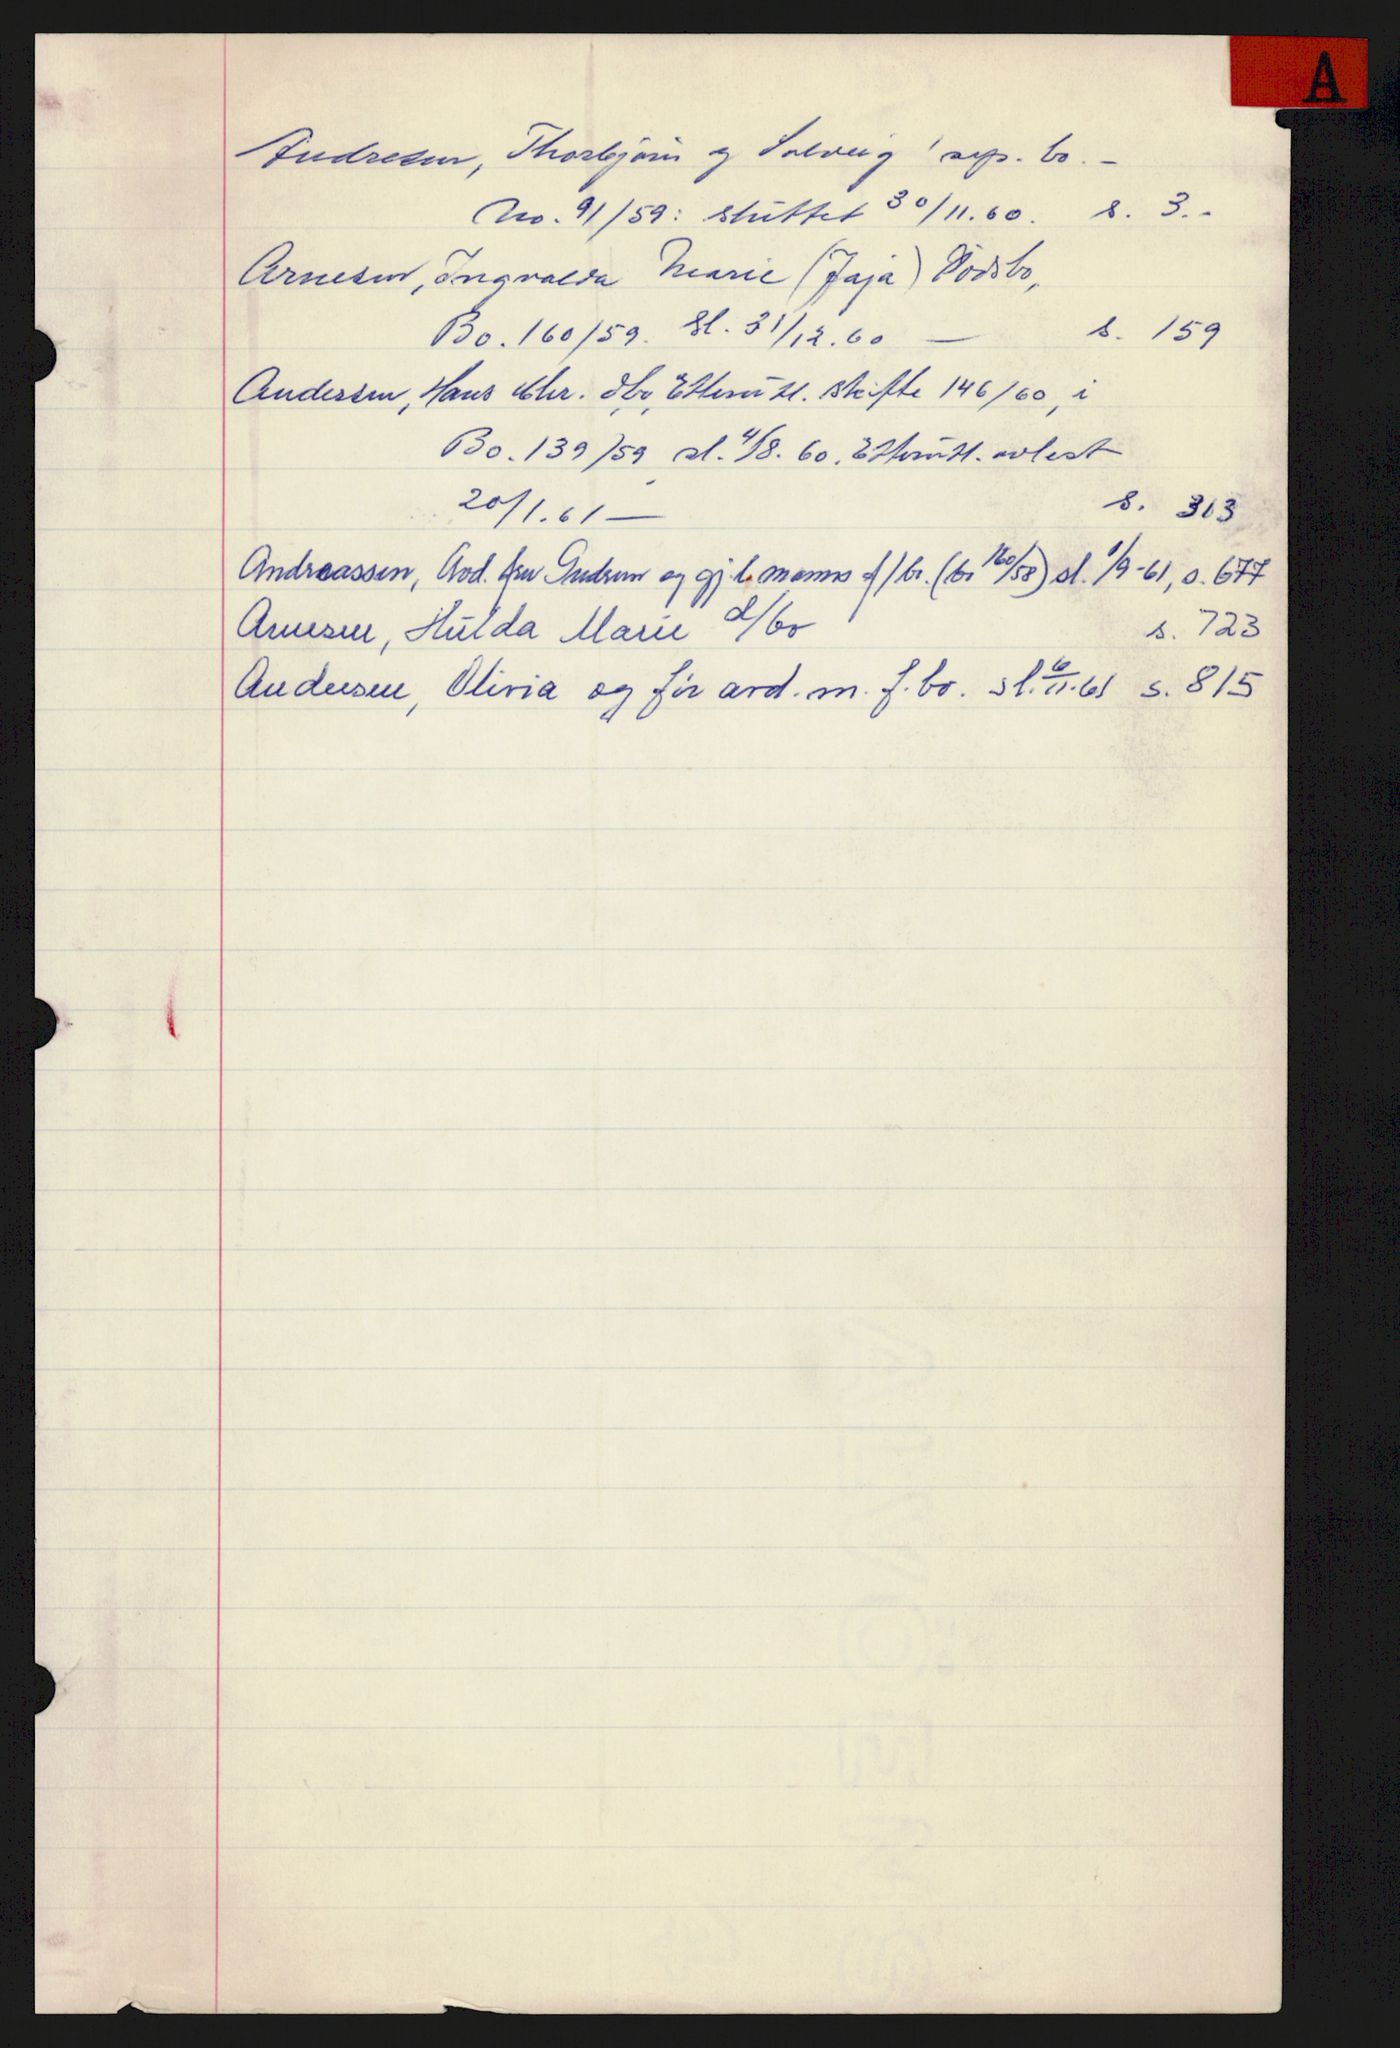 A
Andresen, Thorbjørn og Solveig' sep. bo. -
No. 91/59: sluttet 30/11.60. s. 3.-
Arnesen, Ingvalda Marie (Jaja) Dødsbo,
Bo. 160/59. Sl. 31/12.60 — s. 159
Andersen, Hans Chr. dbo, Efterutl. skifte 146/60, i
Bo. 139/59 sl. 4/8.60. Efterutl. avlest
20/1.61 — s. 313
Andreassen, Avd. fru Gudrun og gj.l. manns f/bo. (bo 160/58) sl. 1/9-61, s. 677
Arnesen, Hulda Marie d/bo s. 723
Andersen, Olivia og før avd. m. f.bo. sl. 6/11.61 s. 815